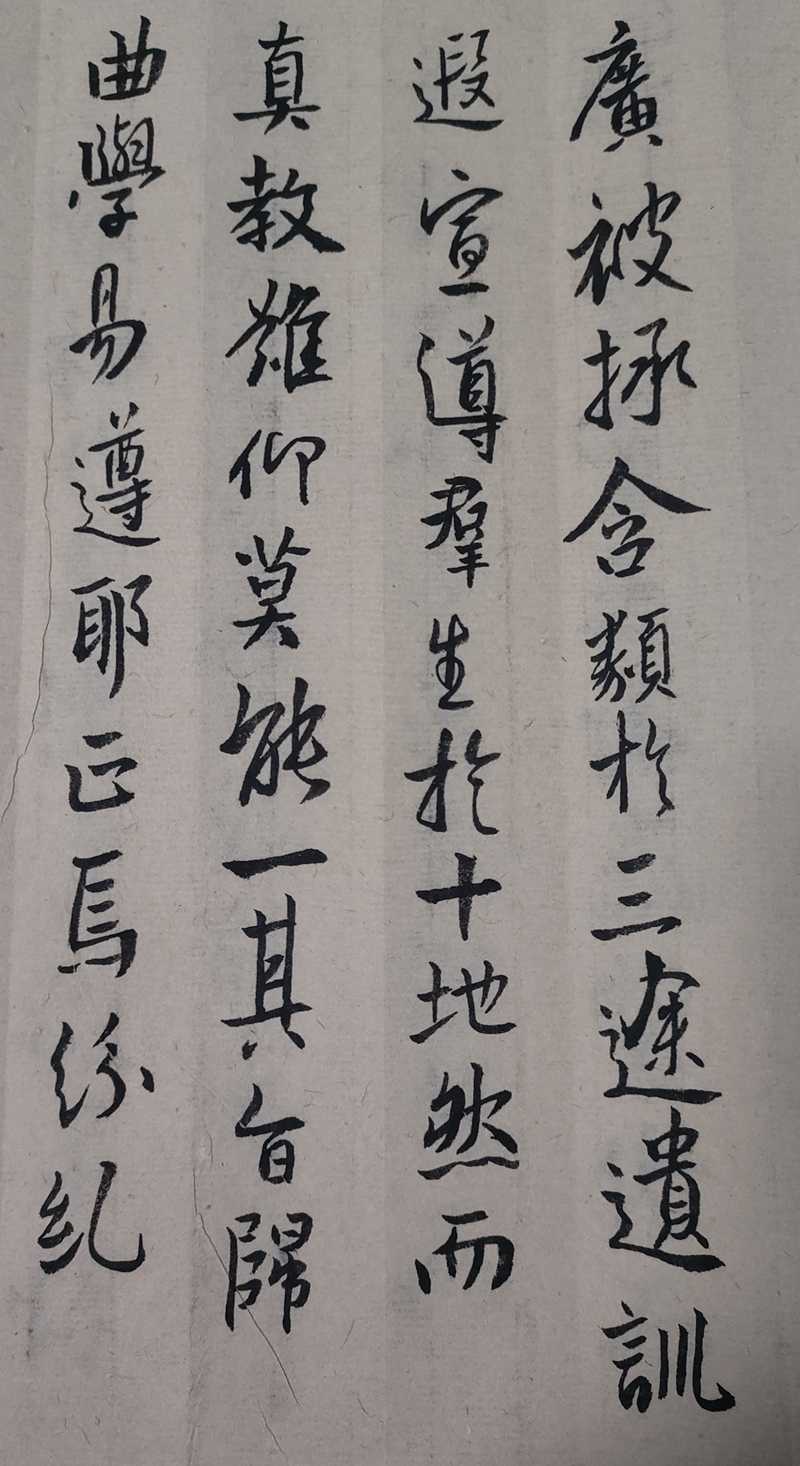 廣被拯含類於三途遺訓
遐宣導羣生於十地然而
真教難仰莫能一其旨歸
曲學易遵耶正焉紛糺